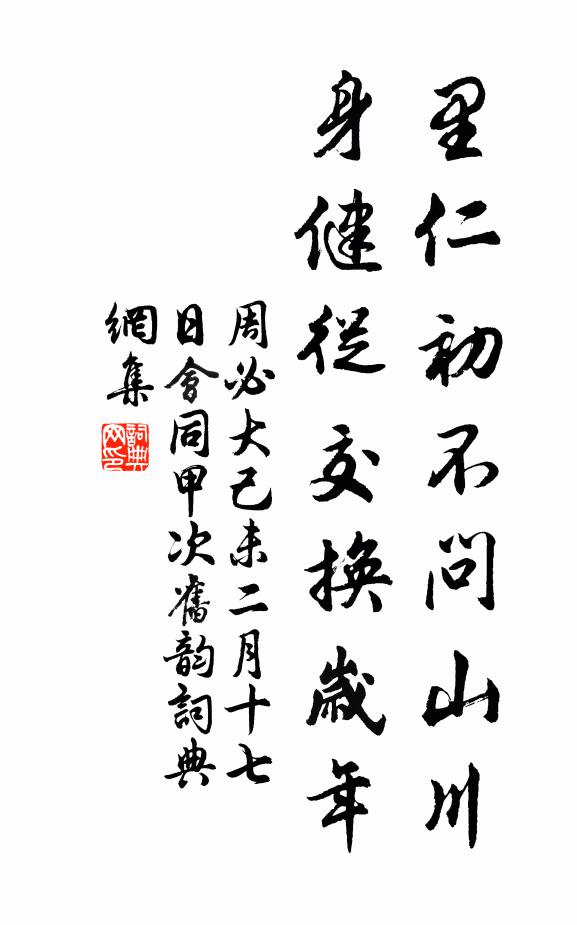 里仁初不問山川
身健從交換歲年
周必大己未二月十七
日會同甲次舊韵詞典
網集
詞典
网印